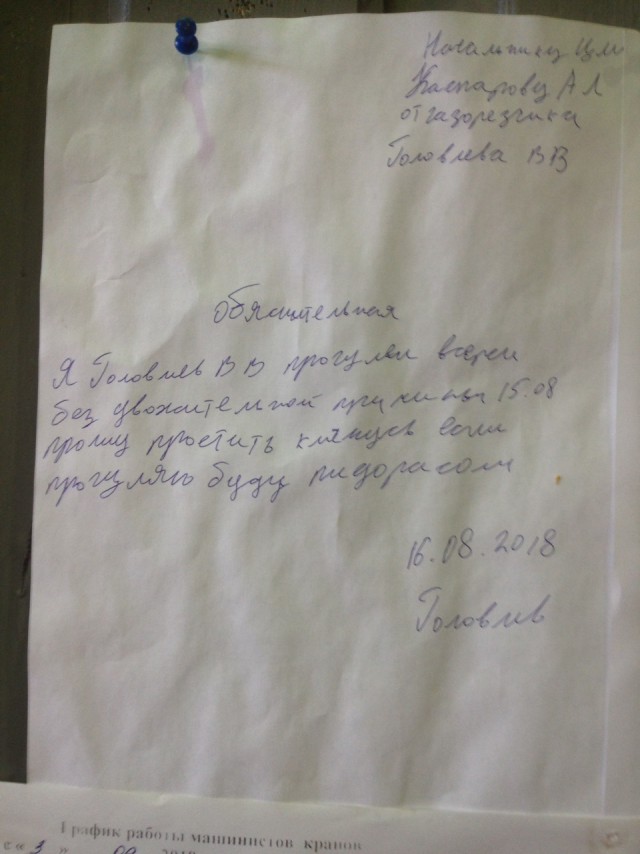 Начальнику ЦМ
Каспарову А Л
от газорезчика
Головлева В В
Обяснительная
Я Головлев В В прогулял вчера
без уважительной причины 15.08
прошу простить клянусь если
прогуляю буду пидорасом
16.08.2018
Головлев
График работы машинистов кранов
с « 3 » 09